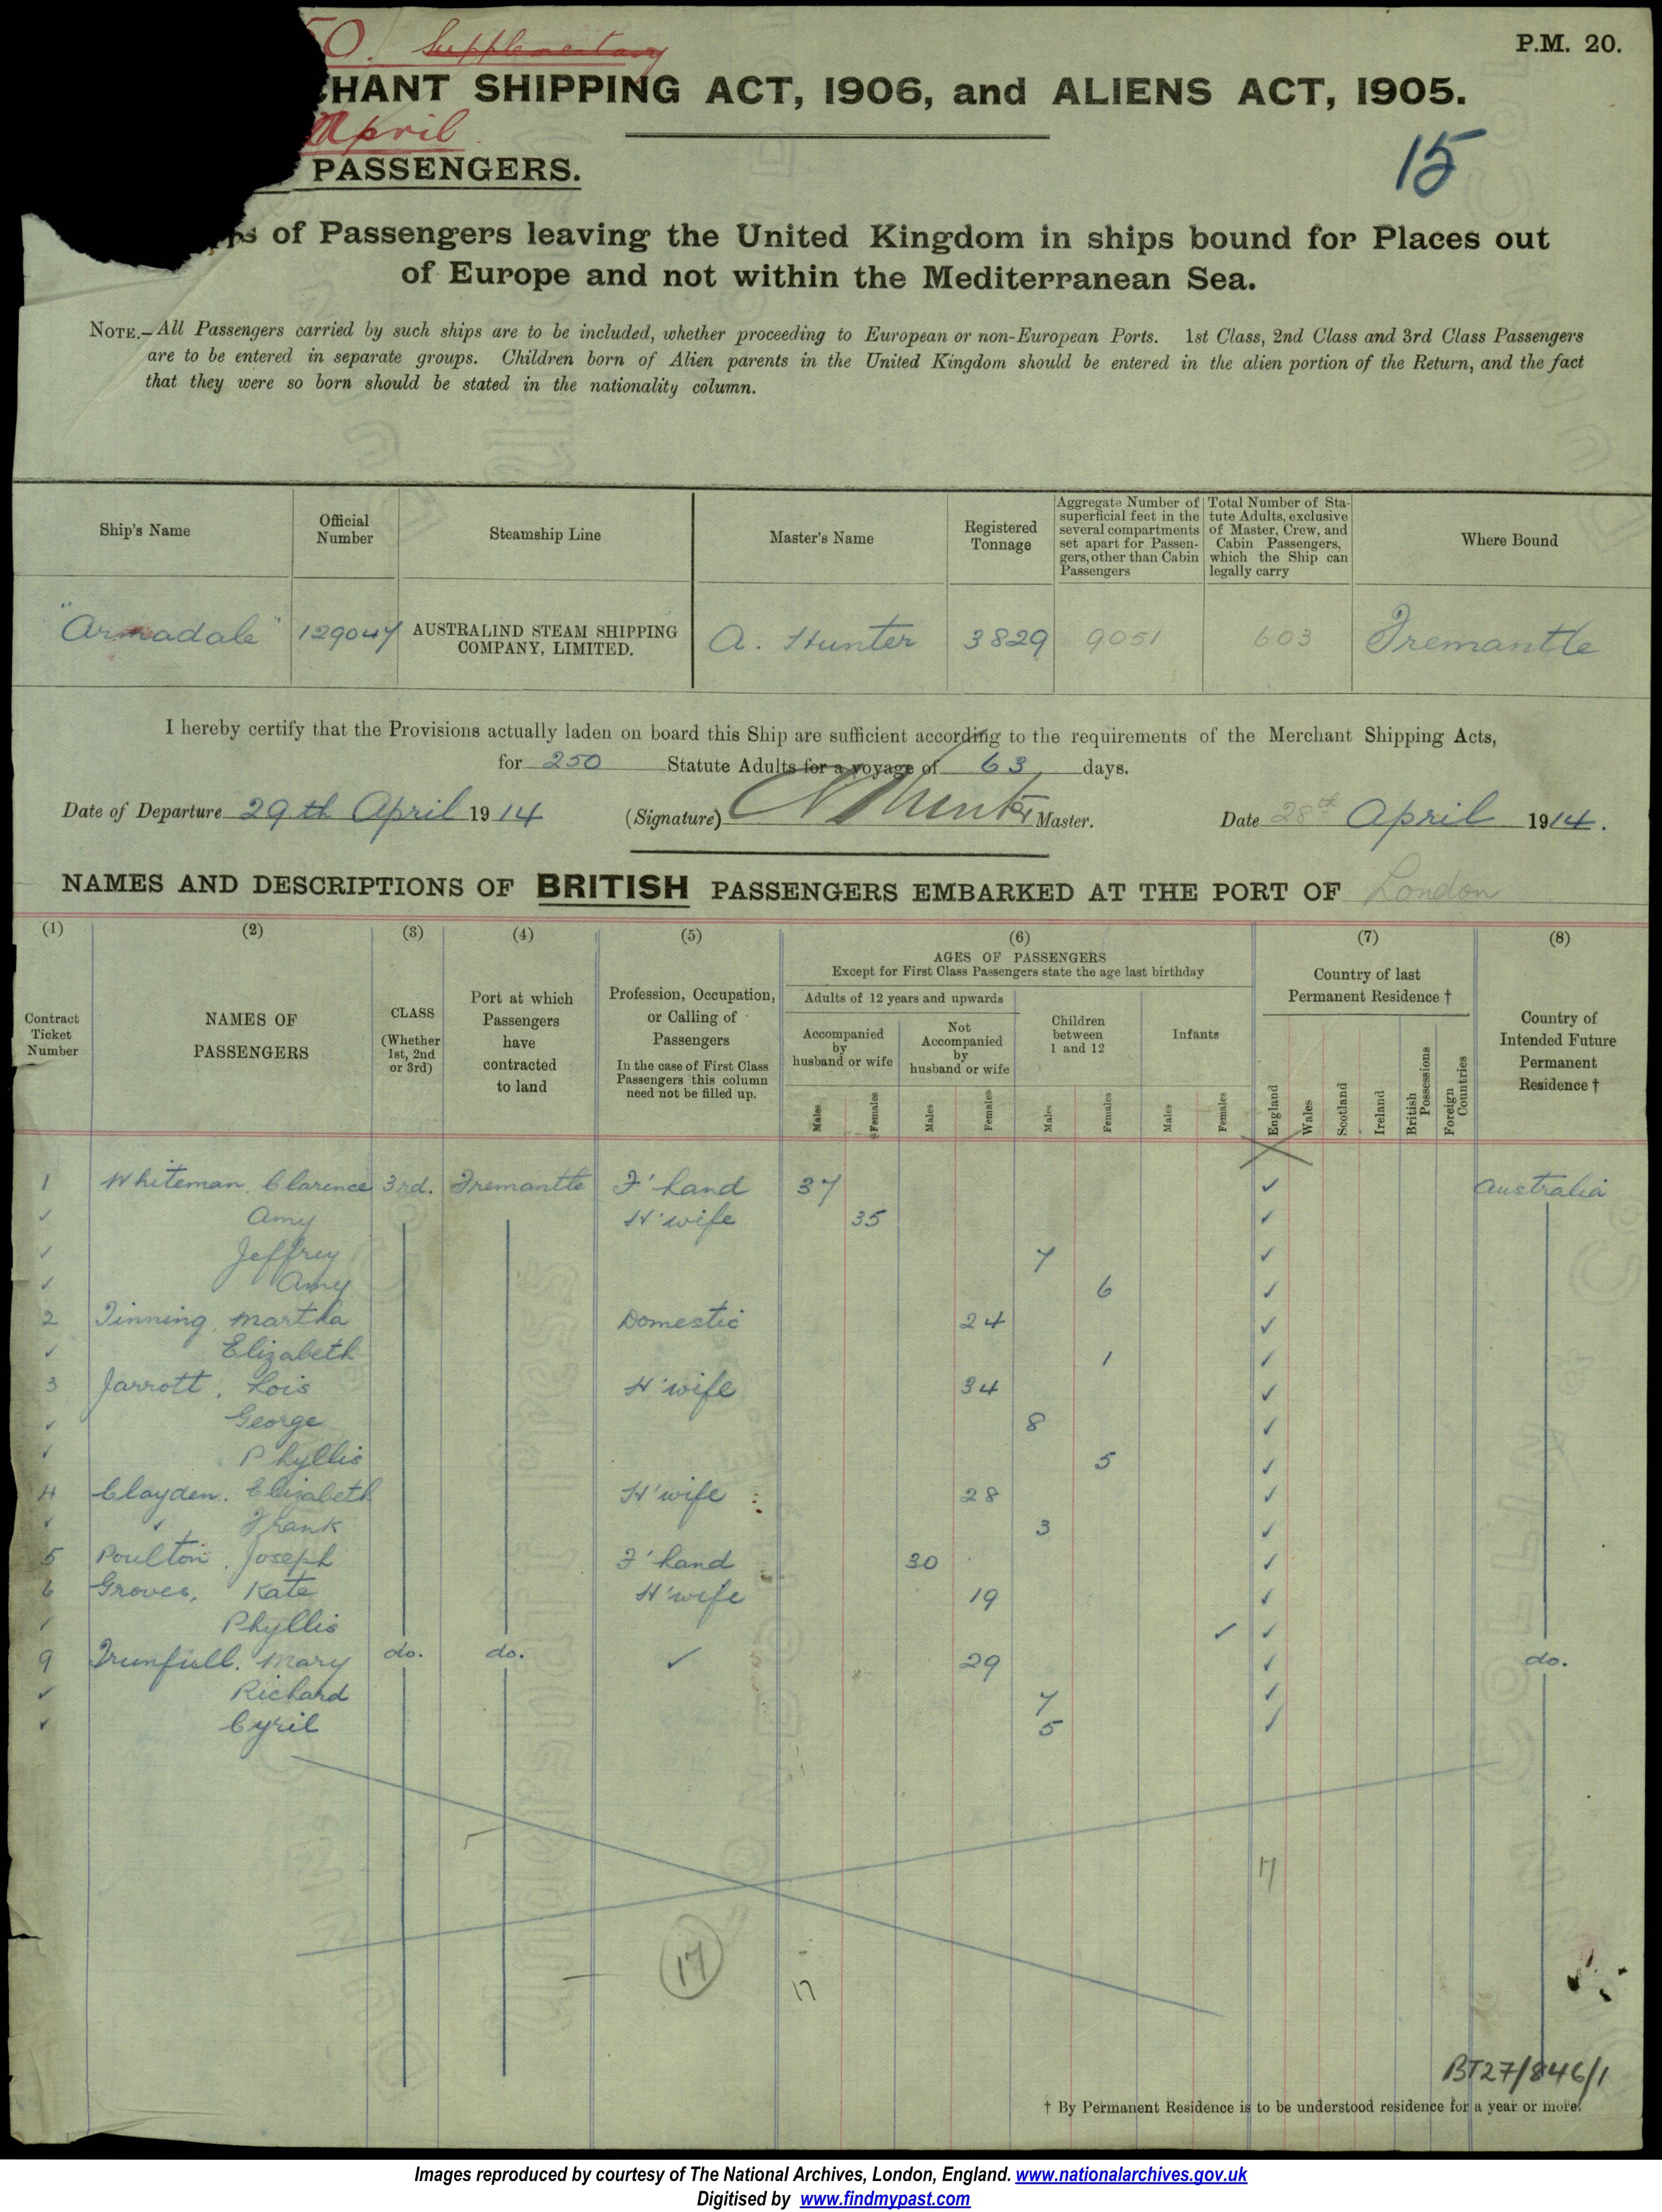 50. Supplementary
P.M. 20.
CHANT SHIPPING ACT, 1906, and ALIENS ACT, 1905.
April
15
PASSENGERS.
of Passengers leaving the United Kingdom in ships bound for Places out
of Europe and not within the Mediterranean Sea.
NOTE.—All Passengers carried by such ships are to be included, whether proceeding to European or non-European Ports. 1st Class, 2nd Class and 3rd Class Passengers
are to be entered in separate groups. Children born of Alien parents in the United Kingdom should be entered in the alien portion of the Return, and the fact
that they were so born should be stated in the nationality column.
Ship's Name
Official Number
Steamship Line
Master's Name
Registered Tonnage
Aggregate Number of superficial feet in the several compartments set apart for Passengers, other than Cabin Passengers
Total Number of Statute Adults, exclusive of Master, Crew, and Cabin Passengers, which the Ship can legally carry
Where Bound
"Armadale" 129047 AUSTRALIND STEAM SHIPPING COMPANY, LIMITED. A. Hunter 3829 9051 603 Fremantle
I hereby certify that the Provisions actually laden on board this Ship are sufficient according to the requirements of the Merchant Shipping Acts,
for 250 Statute Adults for a voyage of 63 days.
Date of Departure 29th April 1914 (Signature) A Hunter Master. Date 28th April 1914.
NAMES AND DESCRIPTIONS OF BRITISH PASSENGERS EMBARKED AT THE PORT OF London
(1) (2) (3) (4) (5) (6) (7) (8)
Contract Ticket Number
NAMES OF PASSENGERS
CLASS (Whether 1st, 2nd or 3rd)
Port at which Passengers have contracted to land
Profession, Occupation, or Calling of Passengers
In the case of First Class Passengers this column need not be filled up.
AGES OF PASSENGERS
Except for First Class Passengers state the age last birthday
Adults of 12 years and upwards
Accompanied by husband or wife
Not Accompanied by husband or wife
Children between 1 and 12
Infants
Males Females Males Females Males Females Males Females
Country of last Permanent Residence †
England Wales Scotland Ireland British Possessions Foreign Countries
Country of Intended Future Permanent Residence †
1 Whiteman, Clarence 3rd. Fremantle F'hand 37 ✓ Australia
✓ Amy H'wife 35 ✓
✓ Jeffrey 7 ✓
✓ Amy 6 ✓
2 Tinning, Martha Domestic 24 ✓
✓ Elizabeth 1 ✓
3 Jarrott, Lois H'wife 34 ✓
✓ George 8 ✓
✓ Phyllis 5 ✓
4 Clayden, Elizabeth H'wife 28 ✓
✓ ✓ Frank 3 ✓
5 Poulton, Joseph F'hand 30 ✓
6 Groves, Kate H'wife 19 ✓
✓ Phyllis ✓ ✓
9 Trunfull, Mary do. do. ✓ 29 ✓ do.
✓ Richard 7 ✓
✓ Cyril 5 ✓
17
17
17
BT27/846/1
† By Permanent Residence is to be understood residence for a year or more.
Images reproduced by courtesy of The National Archives, London, England. www.nationalarchives.gov.uk
Digitised by www.findmypast.com